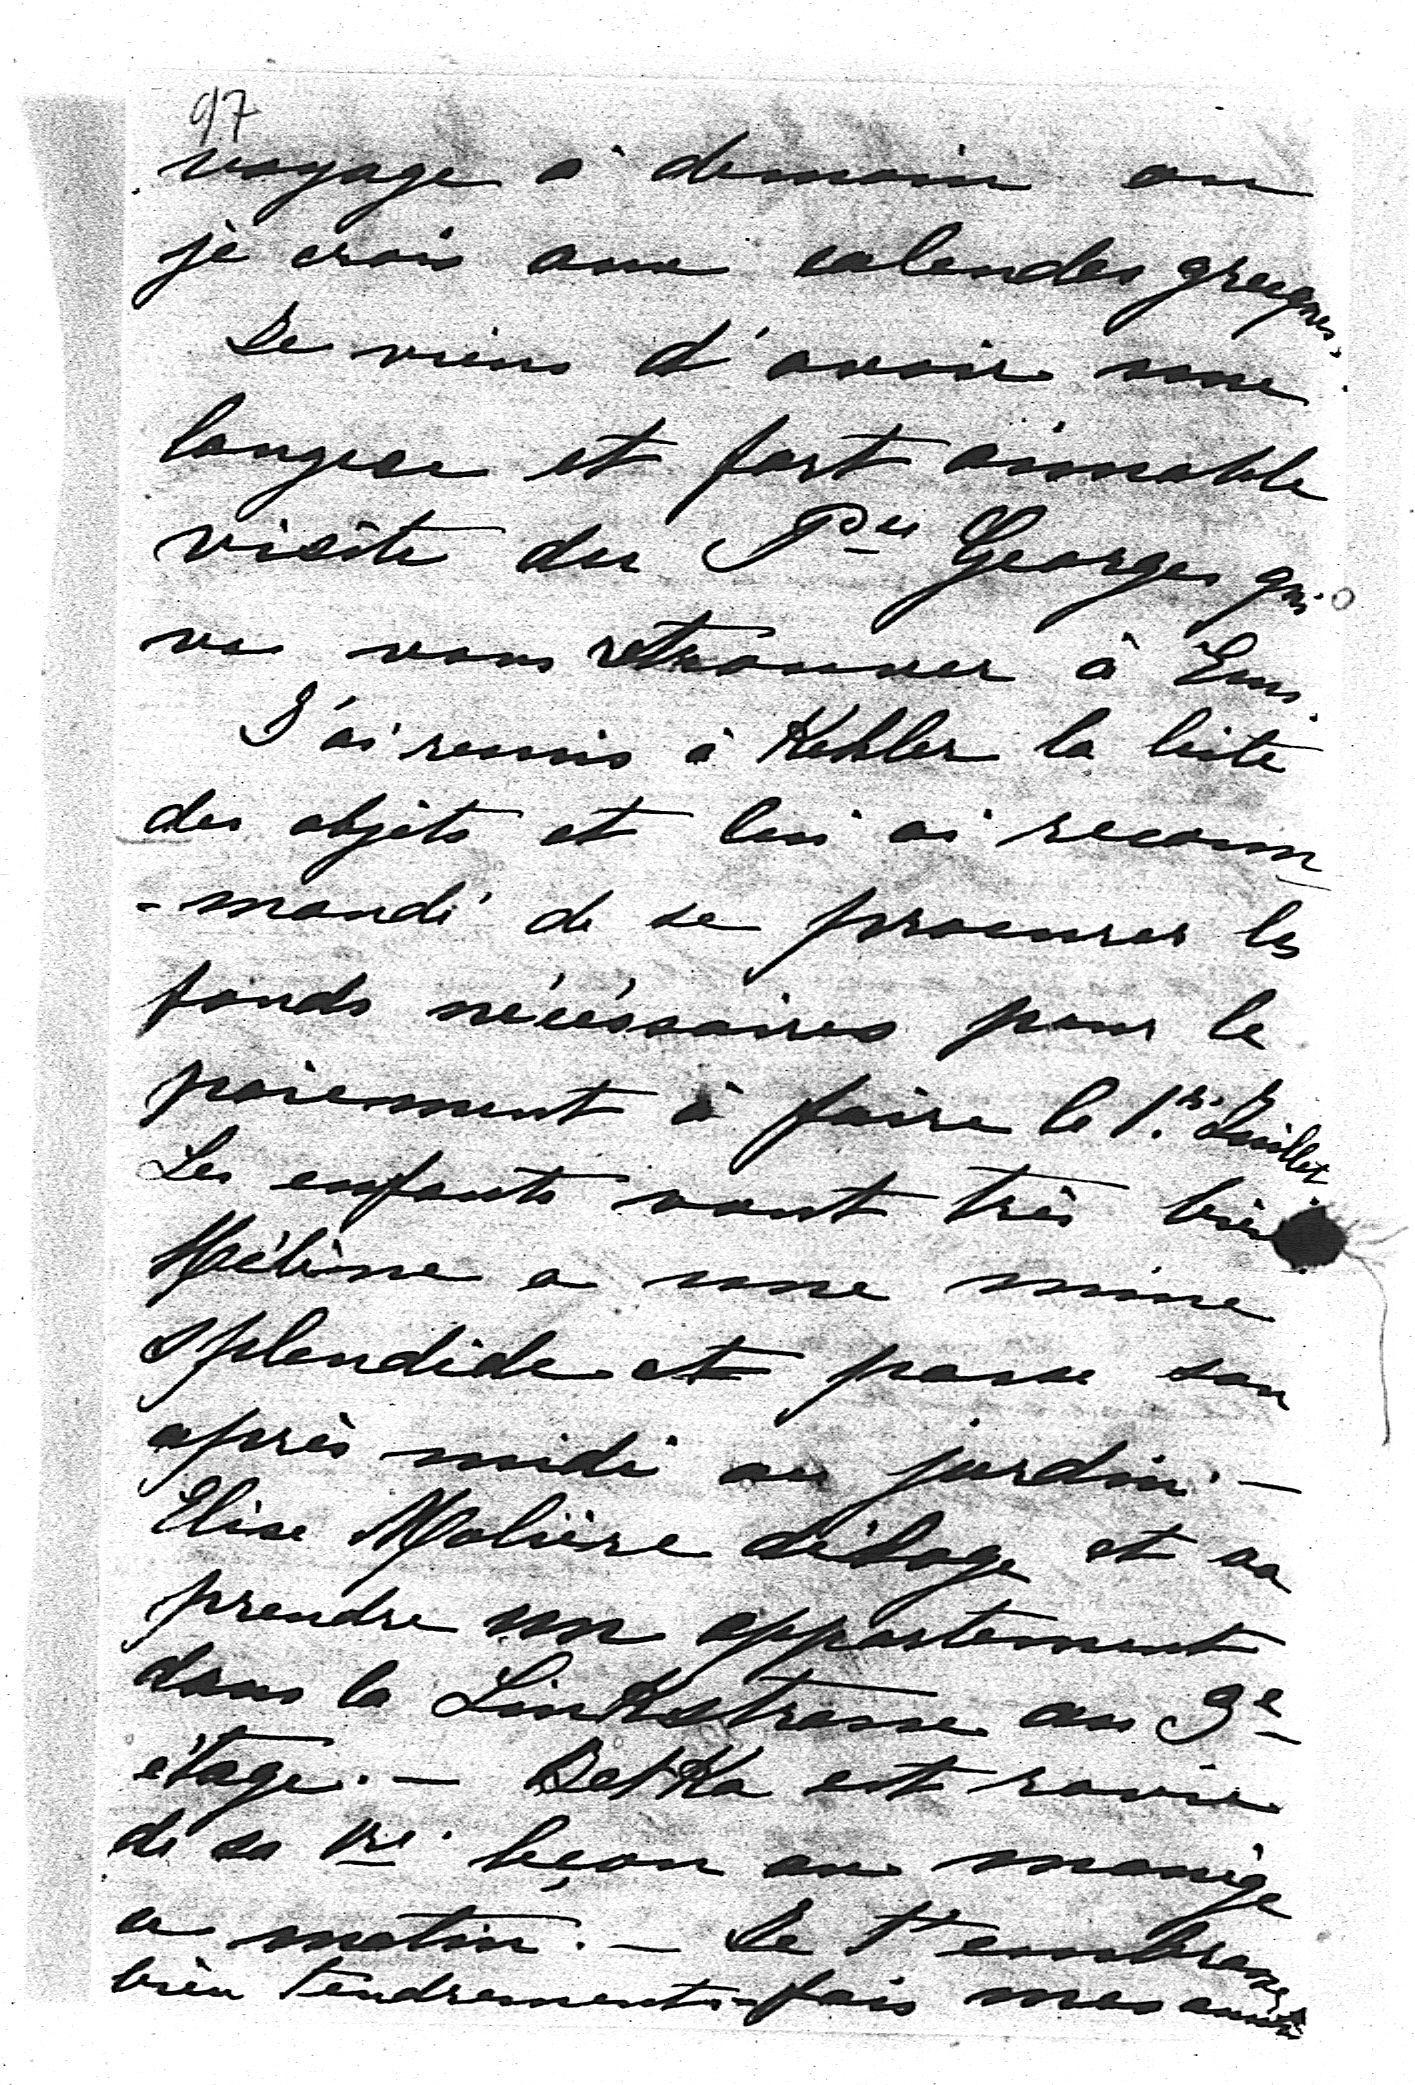 97
voyage à demain ou
je crois aux calendes grecques.
Je viens d'avoir une
longue et fort aimable
visite du Pce Georges qui
va vous retrouver à Ems.
J'ai remis à Kehler la liste
des objets et lui ai recom
-mandé de se procurer les
fonds nécéssaires pour le
paiement à faire le 1er Juillet.
Les enfants vont très bien
Hélène a une mine
splendide et passe son
après midi au jardin. —
Elise Molière déloge et va
prendre un appartement
dans la Linkstrasse au 3e
étage. — Betka est ravie
de sa 1re leçon au manège
ce matin. — Je t'embrasse
bien tendrement, fais mes amitiés